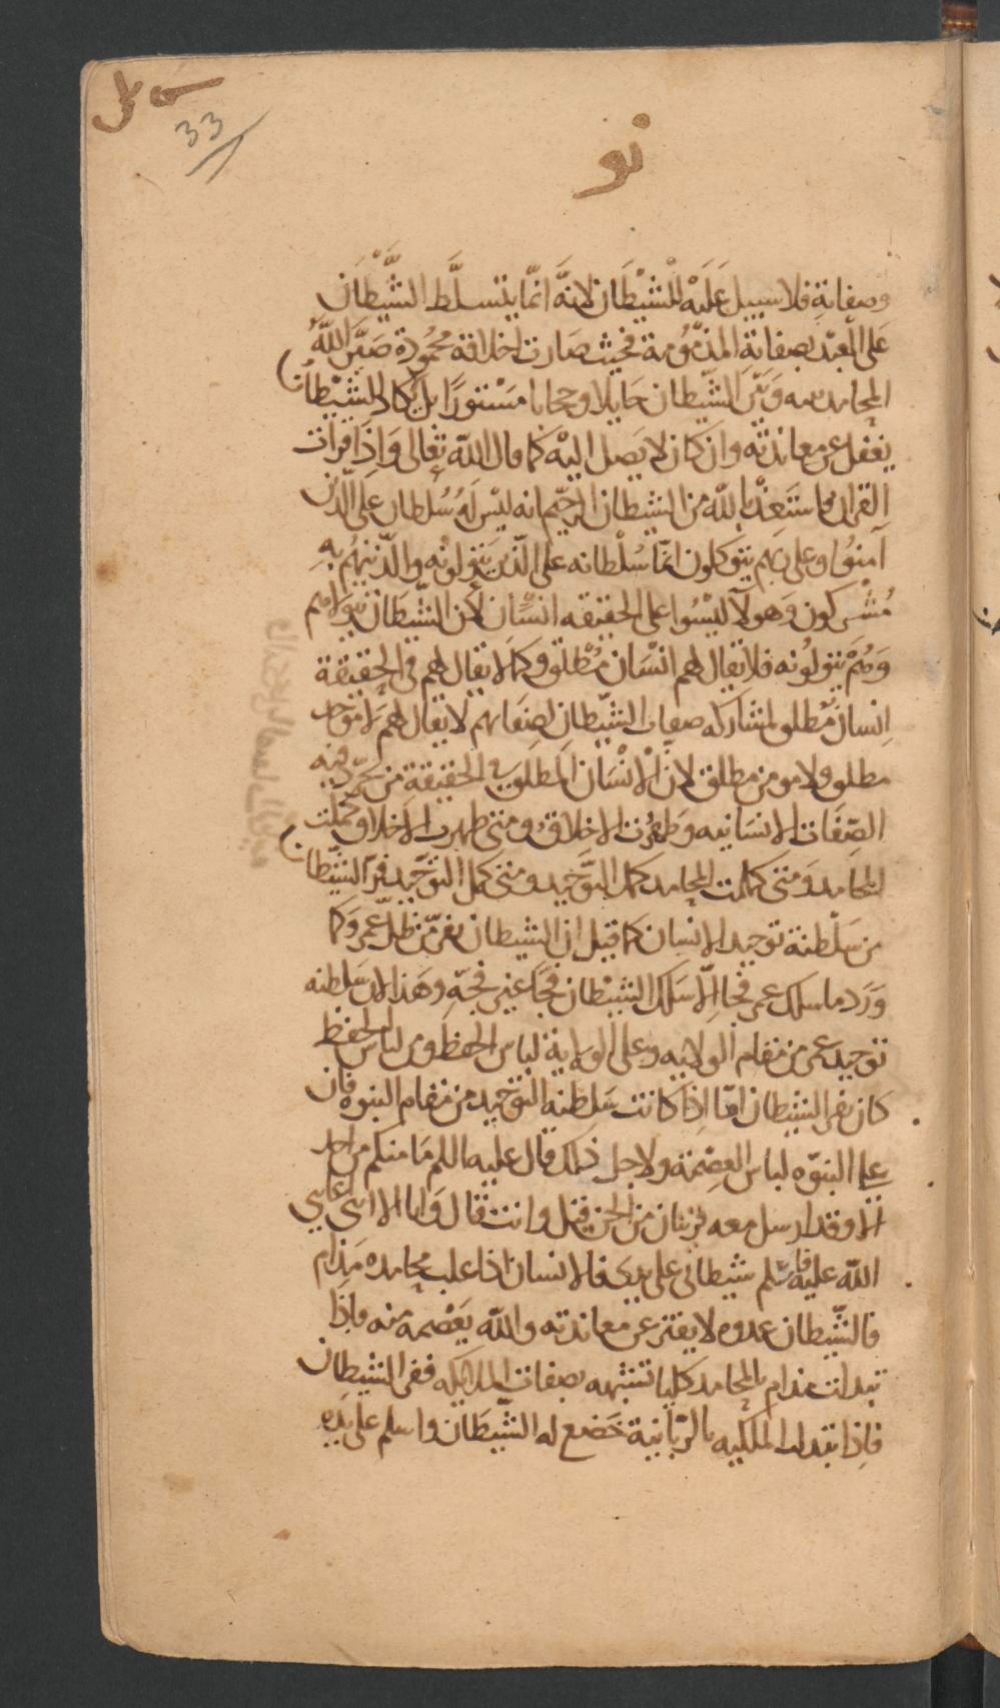 33
نو
وصفاته فلا سبيل عَلَيْه للشيْطَان لانهَّ انمّا يتسلَّط الشَّيْطَان
عَلى العبْد بصفاتهِ المذمُومة فحيث صَارت اخلاقه محمُودة صَيَّر اللهُ
المحامد بينه وبَين الشّيطان حَايلا وحجابا مسْتورًا بل كاد الشيْطان
يغفل عن معاندته وان كان لا يصل اليْه كما قال الله تعالى وَاِذا قرات
القران فاستعذ بالله من الشيطان الرجيم انه ليْس لهُ سُلطان على الّذين
آمنوُا وعلى ربهم يتوكلون انمّا سُلْطانه على الّذين يتولونه والّذين هُم بهِ
مُشركون وَهولآ ليْسُوا على الحقيقه انسَان لان الشَّيطان يتولاهم
وَهُمْ يتولوُنه فلا يقال لهم انْسَان مُطْلق وكما لا يقال لهم في الحقيقة
اِنسان مُطلق لمشاركه صفات الشيّطان لصفاتهم لا يقال لهم موحد
مطلق ولا مومن مطلق لان الْانْسَان المطلق في الحقيقة من تجرّد فيه
الصّفَات الانسَانيه وَطهُرت الاخلاق ومتى طهرت الاخلاق كملت
المحَامد وَمتى كملت المحامد كمل التوَّحَيد ومتى كمل التوحَيد فرّ الشيّطان
من سَلْطنة توحيد الانسان كما قيل ان الشيطان يفرّ من ظلّ عمر وَكما
وَرَد ما سلك عمر فجا الّا سَلك الشيْطان فجًا غير فجّهِ وهَذا لان سَلطنه
توحيد عمر من مقام الولايه وعلى الولاية لباس الحفظ ومن لباس الحفظ
كان يفر الشيطان امّا اذا كانت سَلطنه التوحَيد من مقام النبوه فان
على النبوّه لباس العِصْمَة ولاجل ذلك قال عليه السلم مَا منكم من احد
الا وقد ارسل معه قرينان من الجن قيل وانت قال وَانا الا انى اعانني
الله عليه فاسْلم شيطاني على يدى فالانسان اذا غلب محامده مَذام
فالشيّطان عدوه لا يفتر عن معاندته والله يعْصمهُ منه فاذا
تبدلت مذام بالمحامد كليا تشبهه بصفات الملايكه ففر الشيطان
فاِذا تبدلت الملكيه بالربّانية خَضع له الشيّطَان واسلم على يَدِه